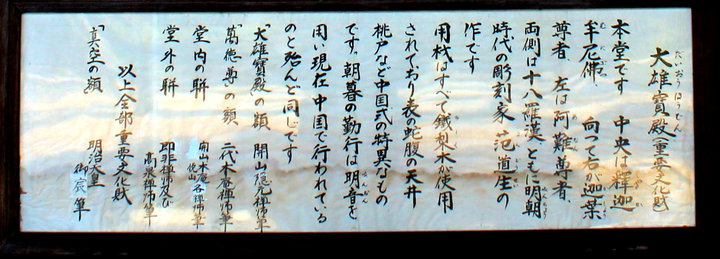 大雄寳殿(重要文化財)
だいおうほうでん
本堂です 中央は釋迦
牟尼佛、向って右が迦葉
尊者、左は阿難尊者、
両側は十八羅漢ともに明朝
時代の彫刻家 范道生の
作です
用材はすべて鐵梨木が使用
されており表の蛇腹の天井
桃戸など中国式の特異なもの
です。朝暮の勤行は明音を
用い現在中国で行われている
のと殆んど同じです
「大雄寳殿」の額 開山隠元禅師筆
「萬徳尊」の額 二代木庵禅師筆
堂内の聯 開山木庵 各禅師筆
堂外の聯 即非禅師及び
高泉禅師筆
以上全部重要文化財
「真空」の額 明治天皇
御宸筆